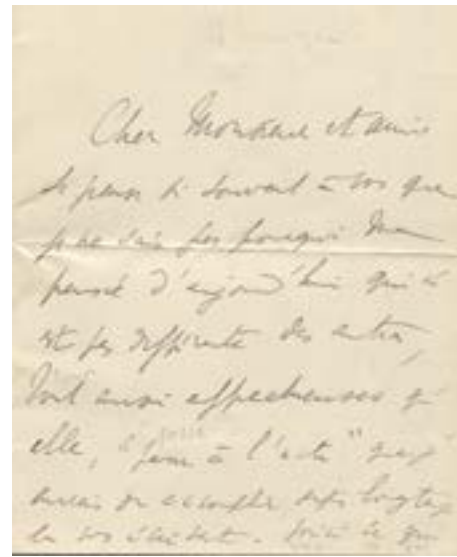 Cher Monsieur et ami
Je pense si souvent à vous que
je ne sais pas pourquoi ma
pensée d'aujourd'hui qui n'
est pas différente des autres,
tout aussi affectueuses qu'
elle, "passe à l'acte" que j'
aurais dû accomplir depuis longtemps
en vous écrivant.